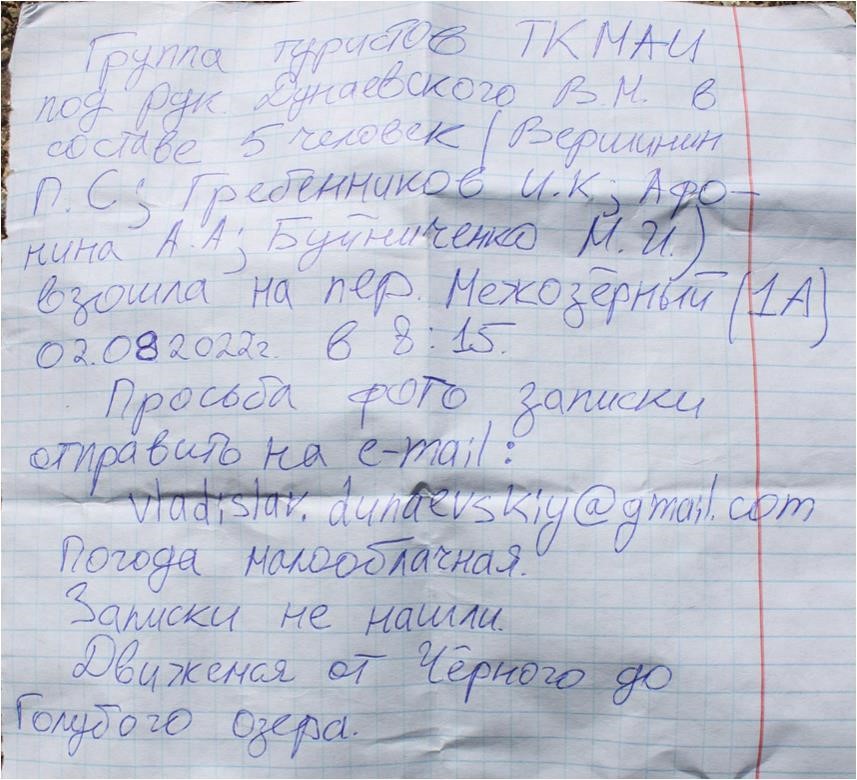 Группа туристов ТКМАИ
под рук. Дунаевского В.М. в
составе 5 человек (Вершинин
П.С; Гребенников И.К; Афо-
нина А.А; Буйниченко М.И.)
взошла на пер. Межозёрный (1А)
02.08 2022г. в 8:15.
Просьба фото записки
отправить на e-mail:
vladislav.dunaevskiy@gmail.com
Погода малооблачная.
Записки не нашли.
Движемся от Чёрного до
Голубого озера.